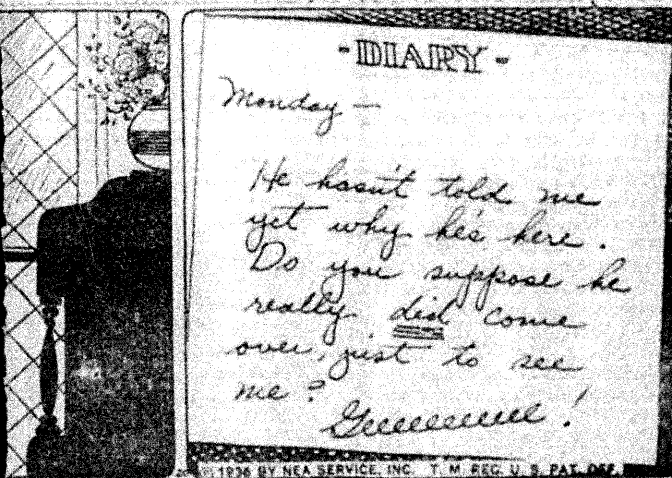 - DIARY -
Monday —
He hasn't told me
yet why he's here.
Do you suppose he
really did come
over, just to see
me?
Geeeeeeeee!
© 1936 BY NEA SERVICE, INC. T. M. REG. U. S. PAT. OFF.